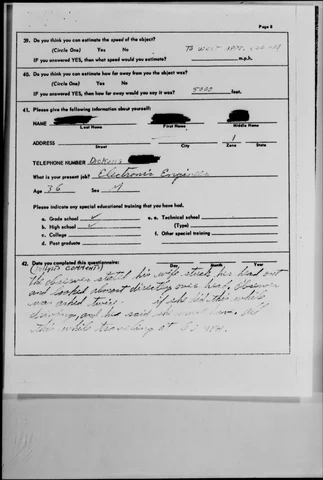 Page 8
39. Do you think you can estimate the speed of the object?
(Circle One) Yes No TO WEST
IF you answered YES, then what speed would you estimate? m.p.h.
40. Do you think you can estimate how far away from you the object was?
(Circle One) Yes No
IF you answered YES, then how far away would you say it was? 5000 feet.
41. Please give the following information about yourself:
NAME
Last Name First Name Middle Name
ADDRESS
Street City Zone State
TELEPHONE NUMBER Dickens
What is your present job? Electronic Engineer
Age 36 Sex M
Please indicate any special educational training that you have had.
a. Grade school ✓ e. Technical school
b. High school ✓ (Type)
c. College f. Other special training
d. Post graduate
42. Date you completed this questionnaire:
Day Month Year
The observer stated his wife stuck her head out
and looked almost directly over head. Observer
was asked twice if she did this while
driving, and he said
this while traveling at 65 MPH.